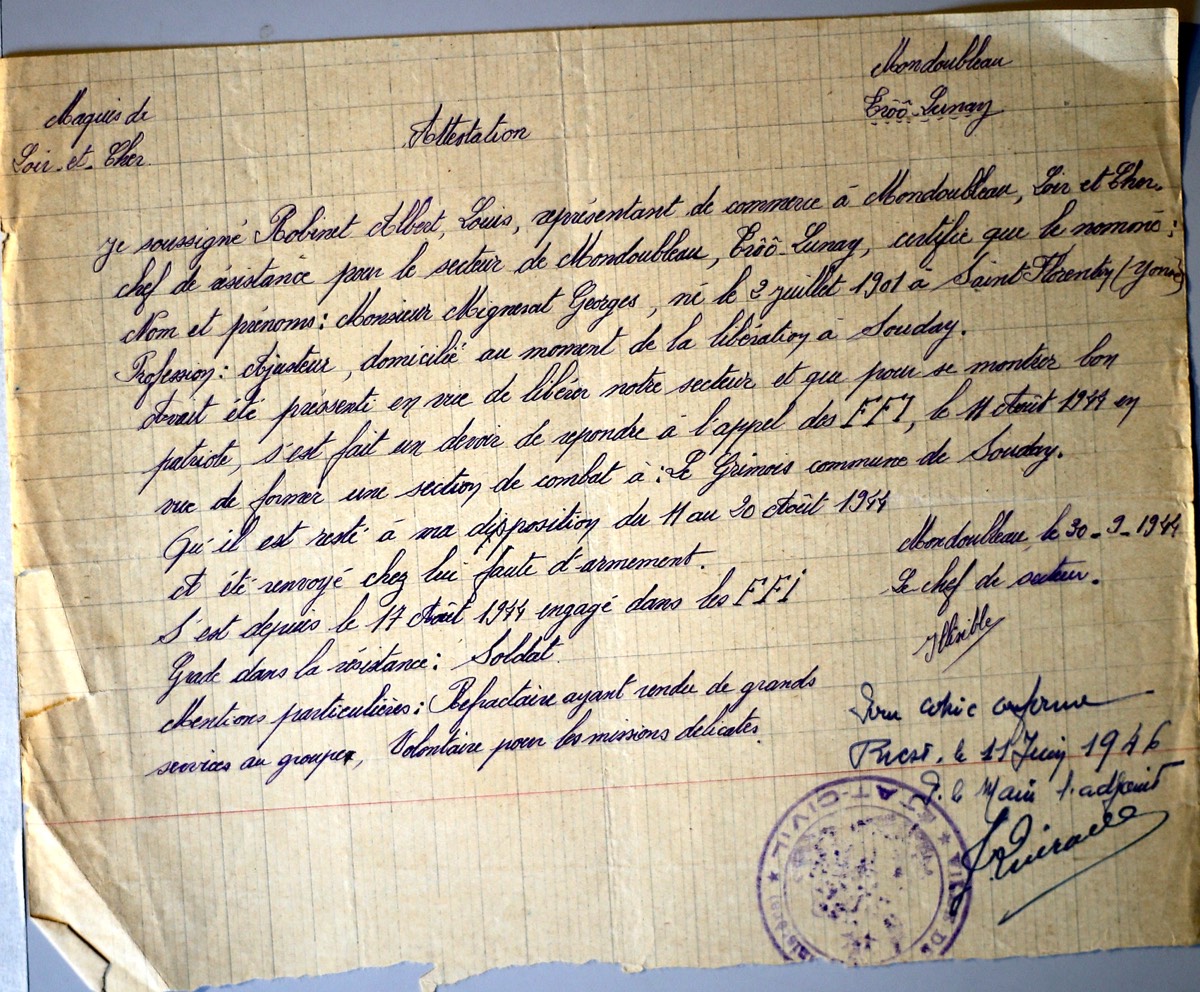 Maquis de
Loir-et-Cher
Attestation
Mondoubleau
Trôô-Lunay
Je soussigné Robinet Albert, Louis, représentant de commerce à Mondoubleau, Loir et Cher.
chef de résistance pour le secteur de Mondoubleau, Trôô-Lunay, certifie que le nommé:
Nom et prénoms: Monsieur Mignerat Georges, né le 2 juillet 1901 à Saint Florentin (Yonne)
Profession: Ajusteur, domicilié au moment de la libération à Souday.
Avait été préssenti en vue de libérer notre secteur et que pour se montrer bon
patriote, s'est fait un devoir de repondre à l'appel des FFI, le 11 Août 1944 en
vue de former une section de combat à: Le Grimois commune de Souday.
Qu'il est resté à ma disposition du 11 au 20 Août 1944
A été renvoyé chez lui faute d'armement.
S'est depuis le 17 Août 1944 engagé dans les FFI
Grade dans la résistance: Soldat.
Mentions particulières: Refractaire ayant rendu de grands
services au groupe, Volontaire pour les missions délicates.
Mondoubleau, le 30-9-1944
Le chef de secteur.
Illisible
Pour copie conforme
Brest, le 11 Juin 1946
P. le Maire l'adjoint
ETAT-CIVIL
VILLE DE